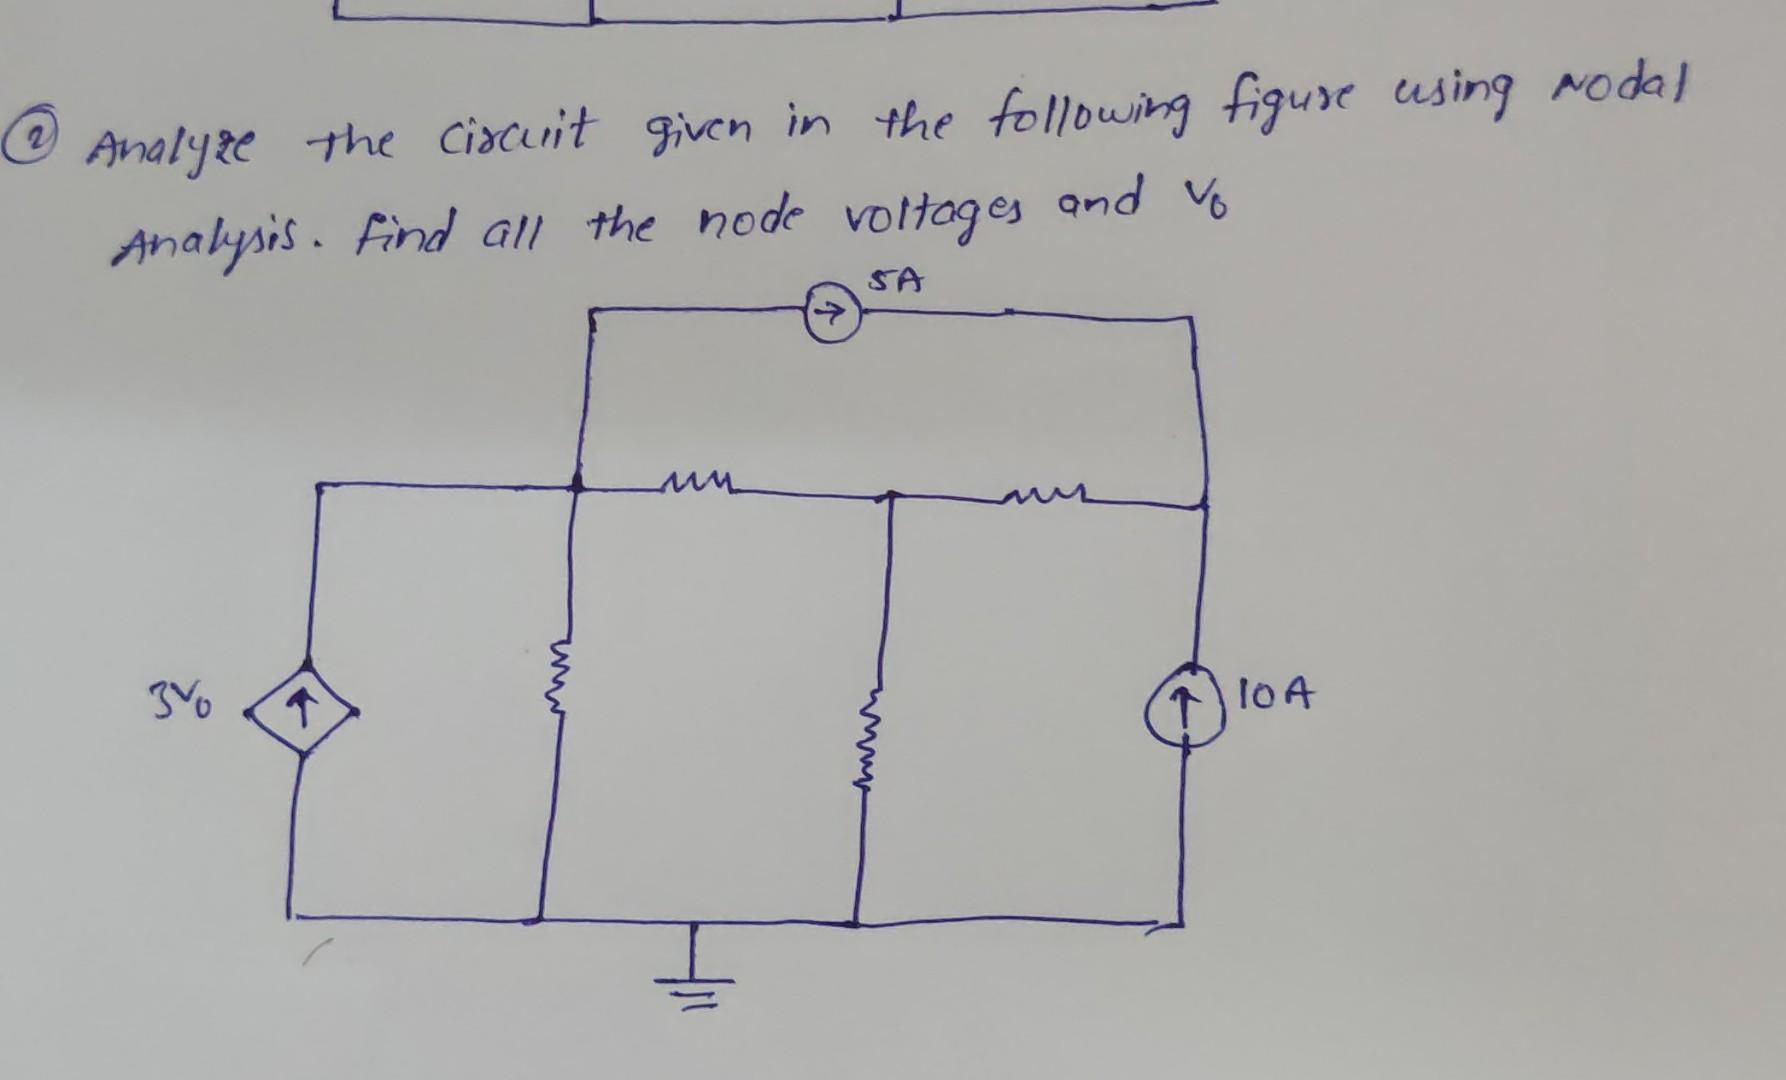 ② Analyze the circuit given in the following figure using Nodal
Analysis. find all the node voltages and V₀
5A
3V₀
10A